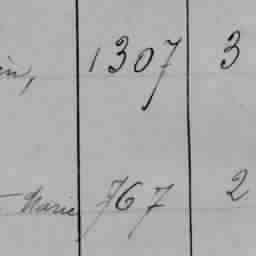 1307 3
Marie 767 2